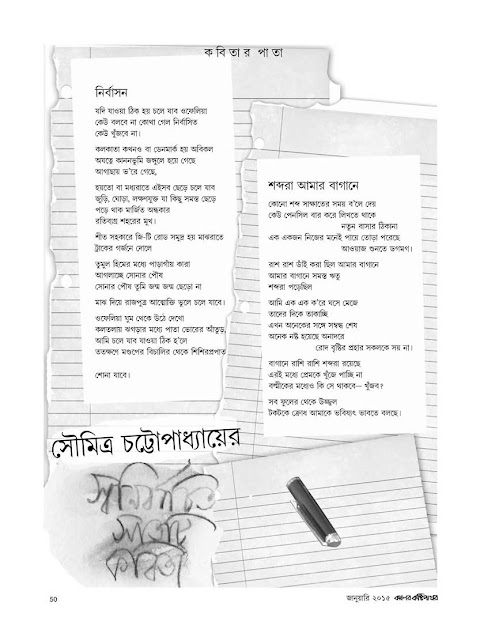 কবিতার পাতা
নির্বাসন
যদি যাওয়া ঠিক হয় চলে যাব ওফেলিয়া
কেউ বলবে না কোথা গেল নির্বাসিত
কেউ খুঁজবে না।
কলকাতা কখনও বা ডেনমার্ক হয় অবিকল
অযত্নে কাননভূমি জঙ্গুলে হয়ে গেছে
আগাছায় ভ'রে গেছে,
হয়তো বা মধ্যরাতে এইসব ছেড়ে চলে যাব
জুড়ি, ঘোড়া, লক্ষণযুক্ত যা কিছু সমস্ত ছেড়ে
পড়ে থাক মার্জিত অন্ধকার
রতিব্যগ্র শহরের মুখ।
শীত সহকারে জি-টি রোড সমুদ্র হয় মাঝরাতে
ট্রাকের গর্জনে দোলে
তুমুল হিমের মধ্যে পাড়াগাঁয় কারা
আগলাচ্ছে সোনার পৌষ
সোনার পৌষ তুমি জন্ম জন্ম ছেড়ো না
মাঝ দিয়ে রাজপুত্র আত্মোক্তি ভুলে চলে যাবে।
ওফেলিয়া ঘুম থেকে উঠে দেখো
কলতলায় ঝগড়ার মধ্যে পাতা ভোরের আঁতুড়,
আমি চলে যাব যাওয়া ঠিক হ'লে
ততক্ষণে মণ্ডপের বিচালির থেকে শিশিরপ্রপাত
শোনা যাবে।
শব্দরা আমার বাগানে
কোনো শব্দ সাক্ষাতের সময় ব'লে দেয়
কেউ পেনসিল বার করে লিখতে থাকে
নতুন বাসার ঠিকানা
এক একজন নিজের মনেই পায়ে তোড়া পরেছে
আওয়াজ শুনতে ডগমগ।
রাশ রাশ ডাঁই করা ছিল আমার বাগানে
আমার বাগানে সমস্ত ঋতু
শব্দরা পড়েছিল
আমি এক এক ক'রে ঘসে মেজে
তাদের দিকে তাকাচ্ছি
এখন অনেকের সঙ্গে সম্বন্ধ শেষ
অনেক নষ্ট হয়েছে অনাদরে
রোদ বৃষ্টির প্রহার সকলকে সয় না।
বাগানে রাশি রাশি শব্দরা রয়েছে
এরই মধ্যে প্রেমকে খুঁজে পাচ্ছি না
বল্মীকের মধ্যেও কি সে থাকবে— খুঁজব?
সব ফুলের থেকে উজ্জ্বল
টকটকে ক্রোধ আমাকে ভবিষ্যৎ ভাবতে বলছে।
সৌমিত্র চট্টোপাধ্যায়ের
স্বনির্বাচিত
সাতটি
কবিতা
50
জানুয়ারি ২০১৫